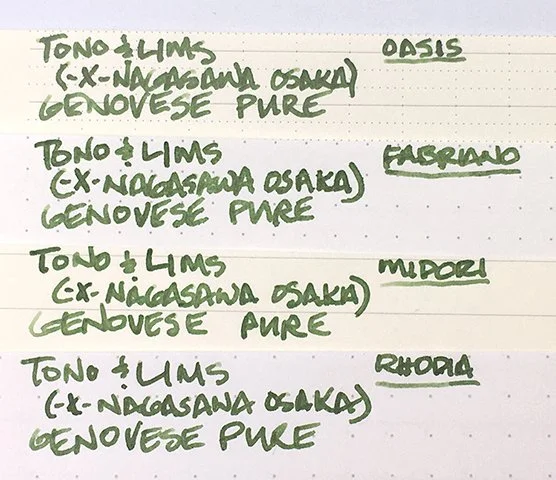 TONO & LIMS OASIS
(-X- NAGASAWA OSAKA)
GENOVESE PURE
TONO & LIMS FABRIANO
(-X- NAGASAWA OSAKA)
GENOVESE PURE
TONO & LIMS MIDORI
(-X- NAGASAWA OSAKA)
GENOVESE PURE
TONO & LIMS RHODIA
(-X- NAGASAWA OSAKA)
GENOVESE PURE